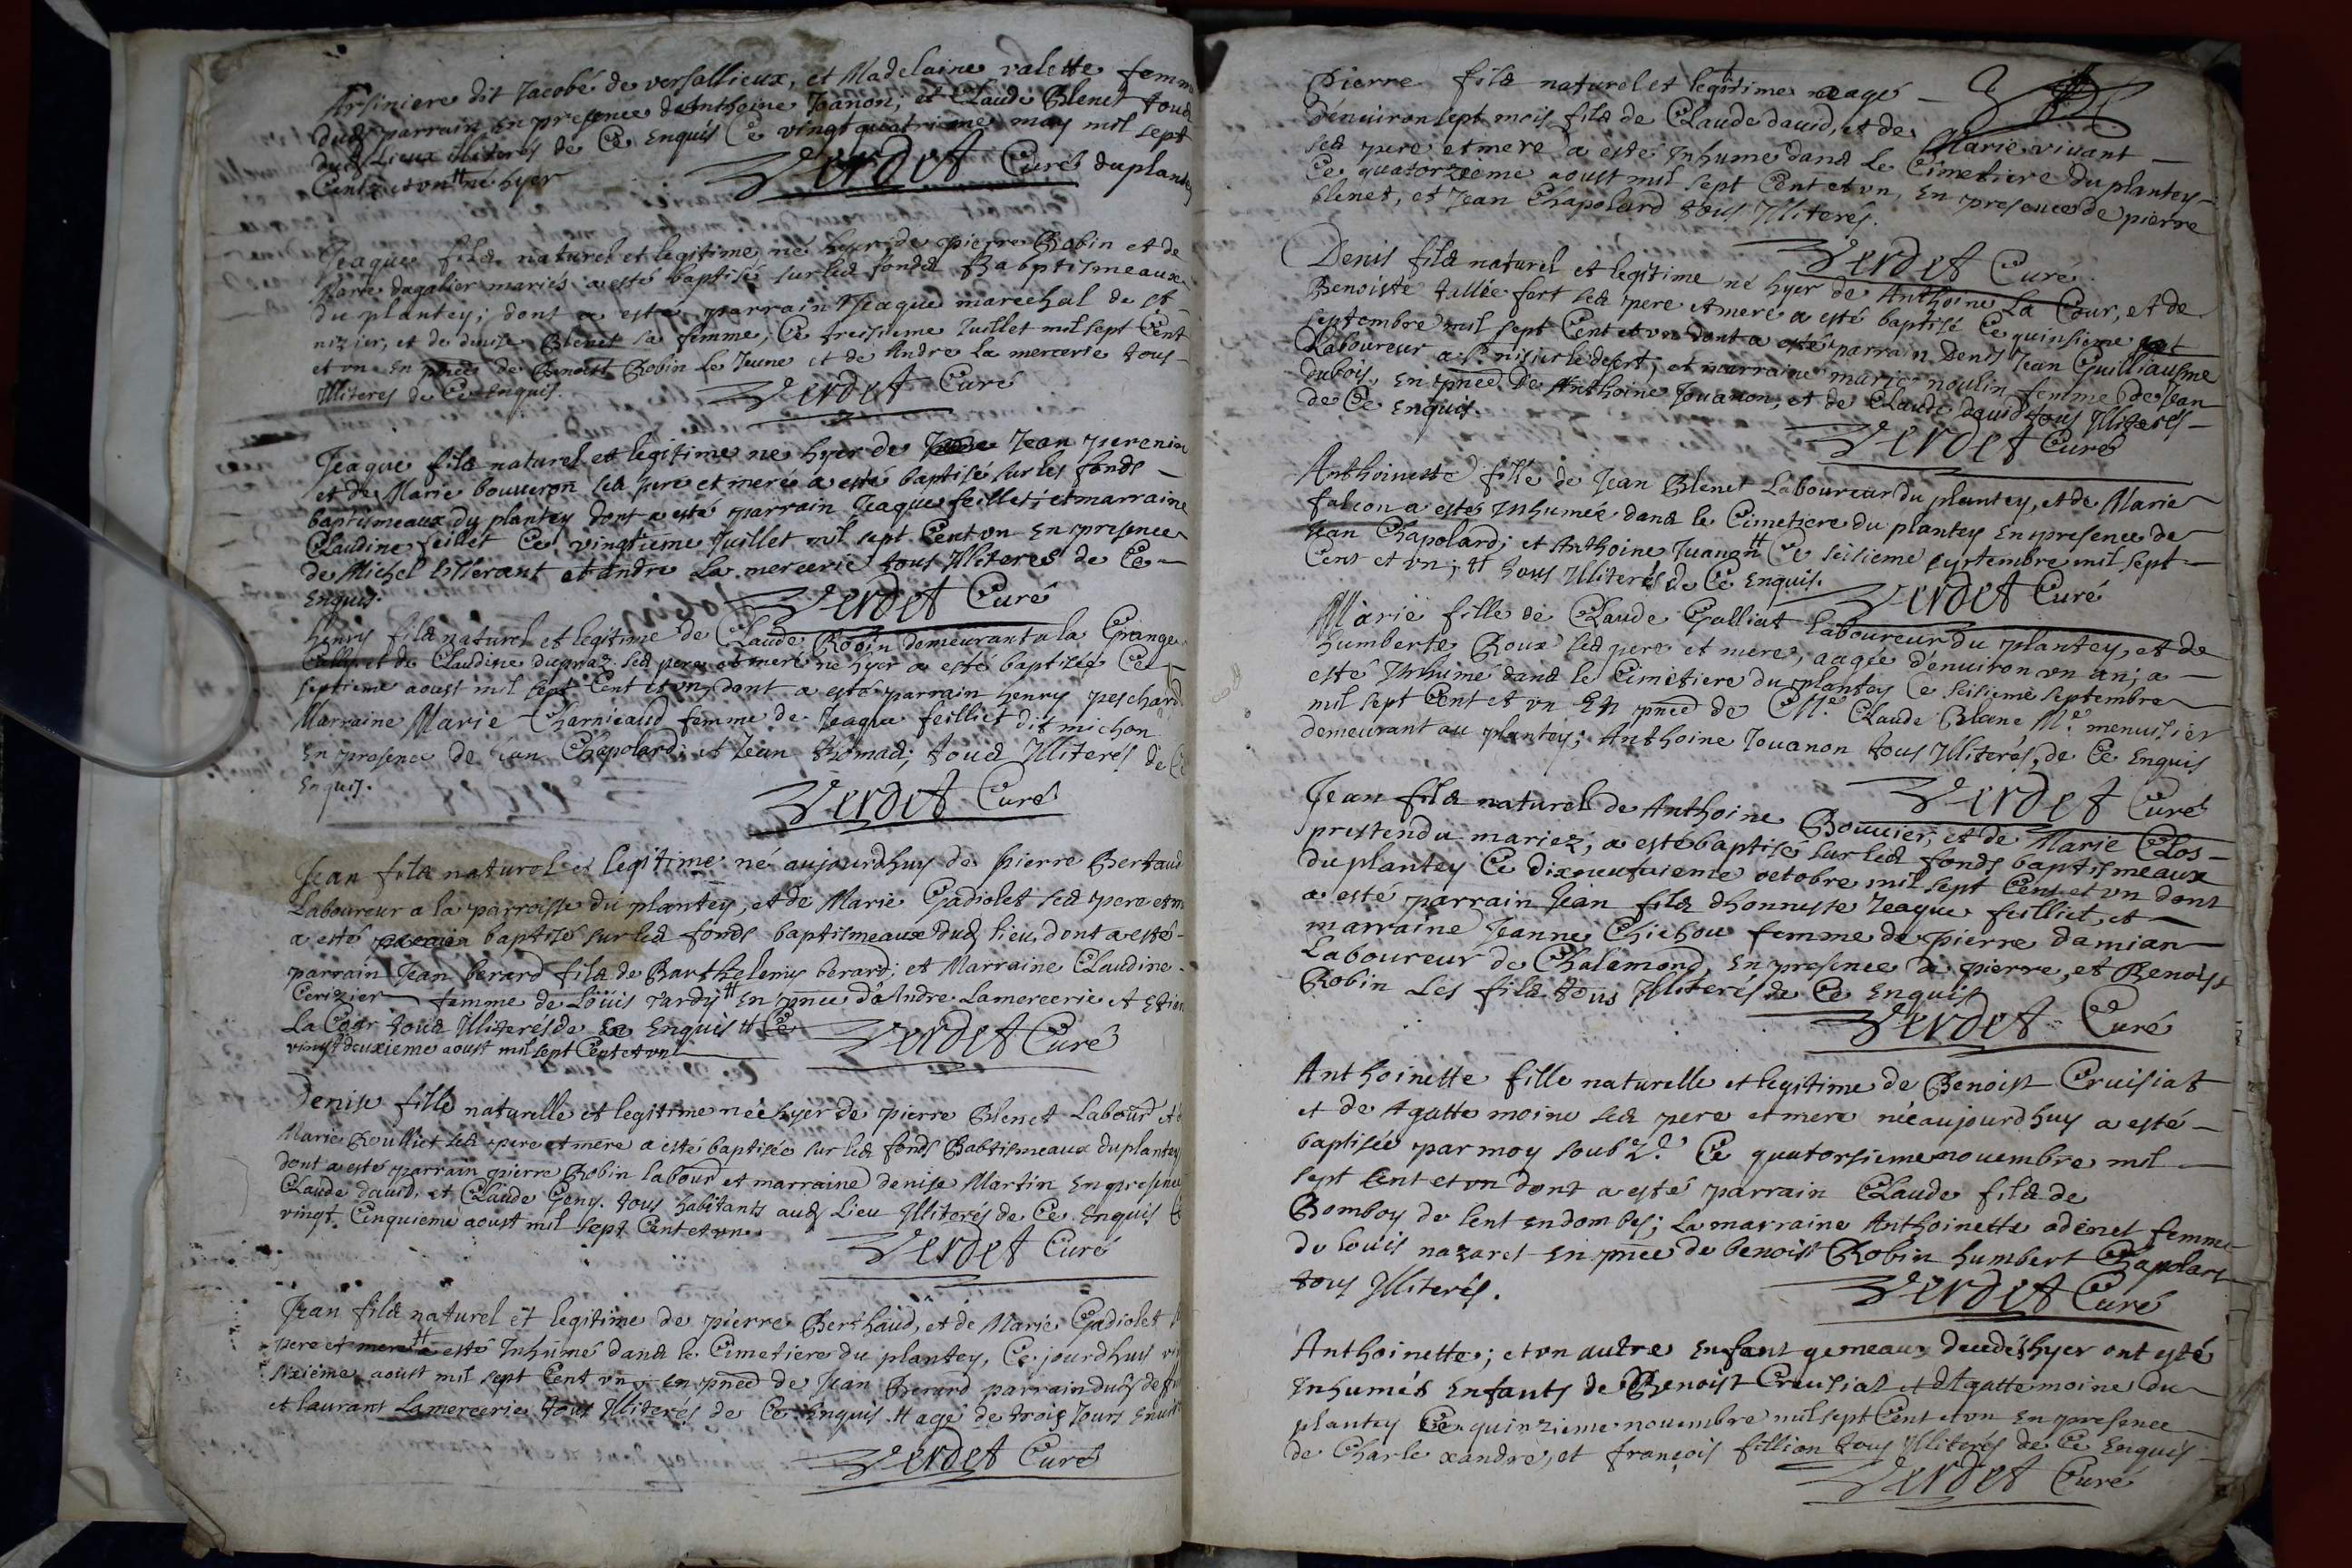 Arsiniere dit Jacobé de versallieux, et Madelaine valette femme
dud parrain, En presence de Anthoine Joanon, et Claude Blenet tous
dud Lieux Illiterés de Ce Enquis Ce vingt quatrieme may mil sept
Cents et vn # né hyer Verdet Curé du plantey
Jeaque fils naturel et legitime né hyer de pierre Robin et de
Marie dagalier mariés a esté baptisé sur les fonds Babptismeaux
du plantey; dont a esté parrain Jeaque marechal de st
nizier, et de denise Blenet sa femme, Ce treisieme Juillet mil sept Cent
et vn En pnce de Benoist Robin Le Jeune et de Andre La mercerie tous
Illiteres de Ce Enquis. Verdet Curé
Jeaque fils naturel et legitime ne hyer de Jean
et de Marie bouveron ses pere et mere a esté baptisé sur les fonds
baptismeaux du plantey dont a esté parrain Jeaque feillet; et marraine
Claudine feillet Ce vingtieme Juillet mil sept Cent vn En presence
de Michel et andre La mercerie tous Illiteres de Ce
Enquis. Verdet Curé
henry fils naturel et legitime de Claude Robin demeurant a la Grange
et de Claudine dupraz ses pere et mere né hyer a esté baptisée Ce
septieme aoust mil sept Cent et vn, dont a esté parrain henry peschard
Marraine Marie Charnicaud femme de Jeaque feilliet dit michon
En presence de Jean Chapolard; et Jean thomas; tous Illiterés de Ce
Enquis. Verdet Curé
Jean fils naturel et legitime né aujourdhuy de pierre Bertaud
Laboureur a la parroisse du plantey, et de Marie Gadiolet ses pere et m
a esté baptisé sur les fonds baptismeaux dud lieu, dont a esté
parrain Jean berard fils de Barthelemy berard; et Marraine Claudine
Cerizier femme de Loüis tardy # En pnce d'Andre Lamercerie et
La Cour tous Illiterés de Ce Enquis # Ce
vingt deuxieme aoust mil sept Cent et vn Verdet Curé
Denise fille naturelle et legitime née hyer de pierre Blenet Labour et
Marie Roulliet ses pere et mere a esté baptisée sur les fonds Babtismeaux du plantey
dont a esté parrain pierre Robin labour et marraine denise Martin En presence
Claude david, et Claude Geny. tous habitants aud Lieu Illiterés de Ce Enquis Ce
vingt Cinquieme aoust mil sept Cent et vn Verdet Curé
Jean fils naturel et legitime de pierre Berthaud, et de Marie Gadiolet
pere et mere # a esté Inhumé dans le Cimetiere du plantey, Ce jourdhuy
sixieme aoust mil sept Cent vn, en pnce de Jean Berard parrain dud
et laurant Lamercerie tous Illiterés de Ce Enquis # agé de trois Jours
Verdet Curé
Pierre fils naturel et legitime aagé
d'enuiron sept mois fils de Claude dauid, et de Marie viuant
ses pere et mere a esté Inhumé dans Le Cimetiere du plantey
Ce quatorzieme aoust mil sept Cent et vn, En presence de pierre
blenet, et Jean Chapolard tous Illiterés.
Verdet Curé
Denis fils naturel et legitime né hyer de Anthoine La Cour, et de
Benoiste fort ses pere et mere a esté baptisé Ce quinsieme
septembre mil sept Cent et vn dont a esté parrain Denis Jean Guilliausme
Laboureur a st nisier le desert; et marraine marie moulin femme de Jean
dubois, En pnce De Anthoine Jouanon, et de Claude dauid tous Illiterés
de Ce Enquis. Verdet Curé
Anthoinette fille de Jean Blenet Laboureur du plantey, et de Marie
falcon a estée Inhumée dans le Cimetiere du plantey En presence de
Jean Chapolard; et Anthoine Juanon # Ce seisieme septembre mil sept
Cens et vn; # tous Illiterés de Ce Enquis. Verdet Curé
Marie fille de Claude Galliat Laboureur du plantey, et de
humberte Roux ses pere et mere; aagée d'enuiron vn an; a
esté Inhumé dans le Cimetiere du plantey Ce seisieme septembre
mil sept Cent et vn En pnce de Me Claude Blanc Me menusier
demeurant au plantey; Anthoine Jouanon tous Illiterés, de Ce Enquis
Verdet Curé
Jean fils naturel de Anthoine Bouuier, et de Marie Clos
prestendu mariez; a esté baptisé sur les fonds baptismeaux
du plantey Ce dixneufuieme octobre mil sept Cens et vn dont
a esté parrain Jean fils dhonneste Jeaque feilliet, et
marraine Jeanne Chichou femme de pierre damian
Laboureur de Chalemond, En presence de pierre, et Benoist
Robin Les fils tous Illiterés de Ce Enquis
Verdet Curé
Anthoinette fille naturelle et legitime de Benoist Cruisiat
et de Agatte moine ses pere et mere née aujourdhuy a esté
baptisée par moy soub Ce quatorsieme nouembre mil
sept Cent et vn dont a esté parrain Claude fils de
Bomboy de lent en dombes; La marraine Anthoinette odenet femme
de loüis nazaret En pnce de benoist Robin humbert Chapolard
tous Illiterés. Verdet Curé
Anthoinette; et vn autre Enfant gemeaux decedés hyer ont esté
Inhumés Enfants de Benoist Creusiat et d'Agatte moine du
plantey Ce quinzieme nouembre mil sept Cent et vn En presence
de Charle xandre, et françois fillion tous Illiterés de Ce Enquis
Verdet Curé